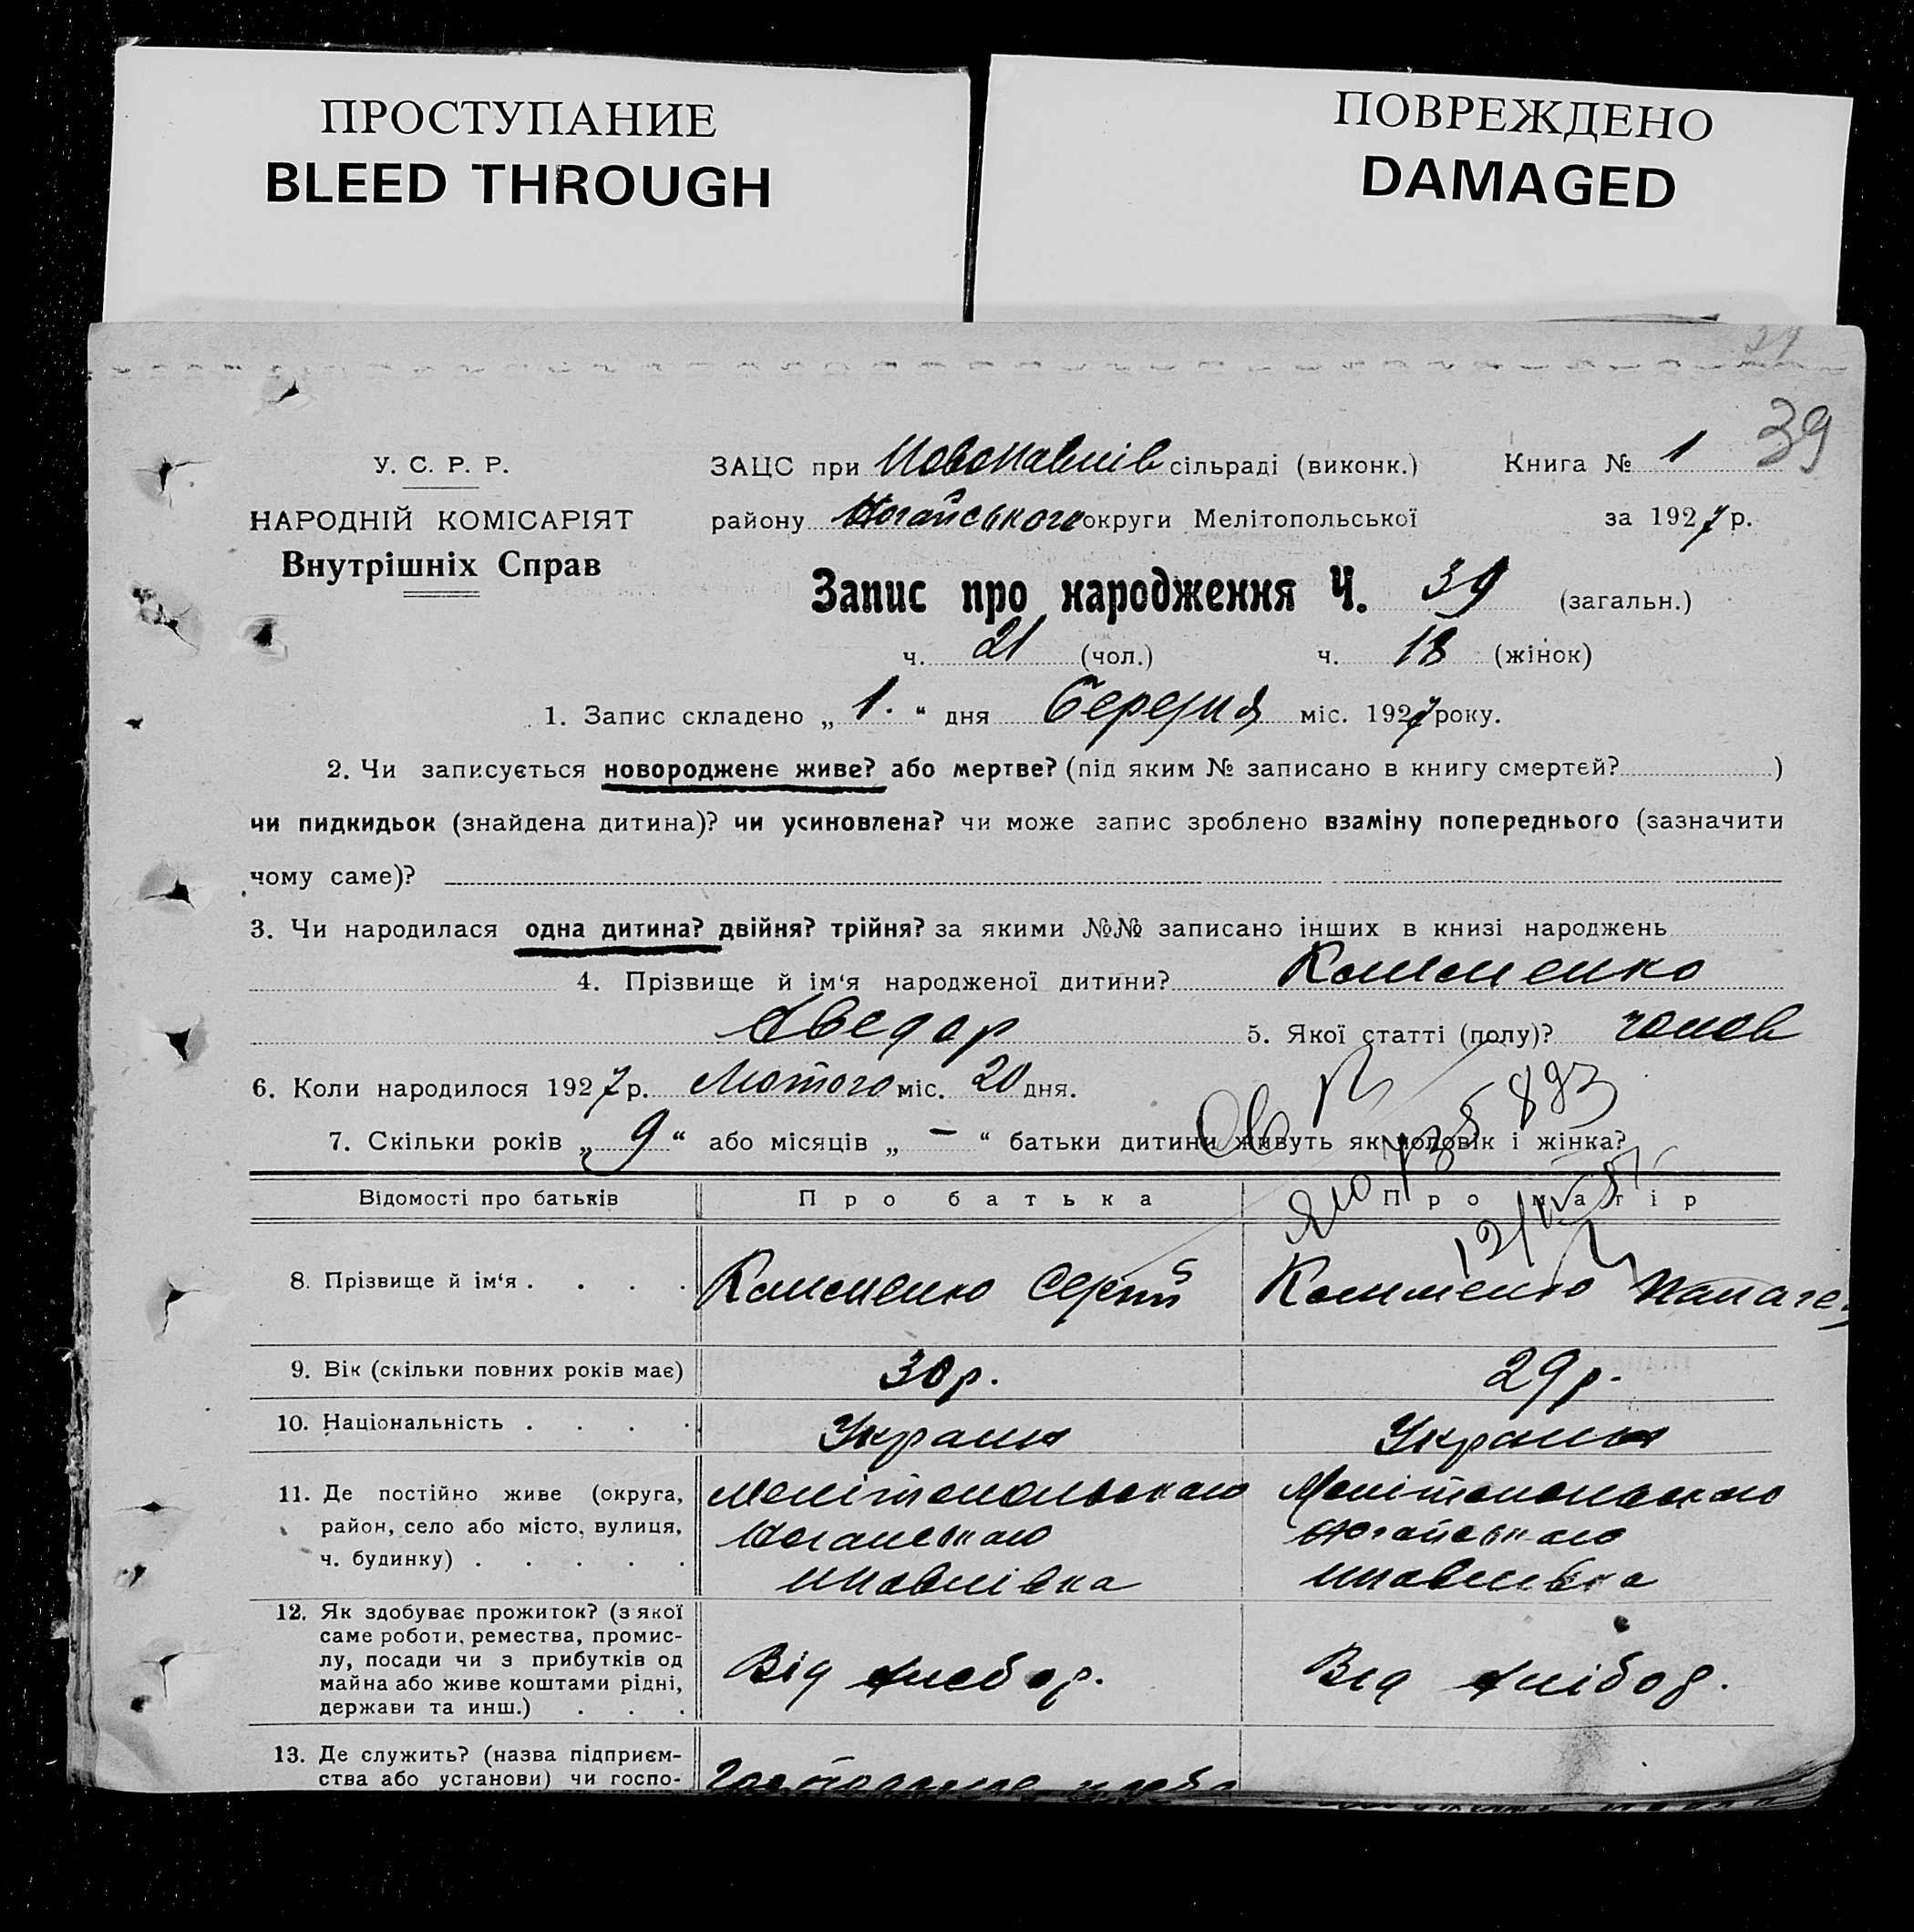 ПРОСТУПАНИЕ
BLEED THROUGH
ПОВРЕЖДЕНО
DAMAGED
39
У. С. Р. Р.
НАРОДНІЙ КОМІСАРІЯТ
Внутрішніх Справ
ЗАЦС при Новопавлів сільраді (виконк.) Книга № 1
району Ногайського округи Мелітопольської за 1927 р.
Запис про народження Ч. 39 (загальн.)
ч. 21 (чол.) ч. 18 (жінок)
1. Запис складено „ 1. “ дня Березня міс. 1927 року.
2. Чи записується новороджене живе? або мертве? (під яким № записано в книгу смертей? )
чи пидкидьок (знайдена дитина)? чи усиновлена? чи може запис зроблено взаміну попереднього (зазначити
чому саме)?
3. Чи народилася одна дитина? двійня? трійня? за якими №№ записано інших в книзі народжень
4. Прізвище й ім‘я народженої дитини?
5. Якої статті (полу)? чолов
6. Коли народилося 1927 р. Лютого міс. 20 дня.
7. Скільки років „ 9 “ або місяців „ – “ батьки дитини живуть як чоловік і жінка?
Відомості про батьків Про батька Про матір
8. Прізвище й ім‘я . . . . Сергій
9. Вік (скільки повних років має) 30 р. 29 р.
10. Національність . . . . Україн Україн
11. Де постійно живе (округа, Мелітопольського Мелітопольського
район, село або місто, вулиця, Ногайського Ногайського
ч. будинку) . . . . . Нпавлівка Нпавлівка
12. Як здобуває прожиток? (з якої
саме роботи, ремества, промис-
лу, посади чи з прибутків од
майна або живе коштами рідні,
держави та инш.) . . . Від хлебор. Від хлібор.
13. Де служить? (назва підприєм-
ства або установи) чи госпо-